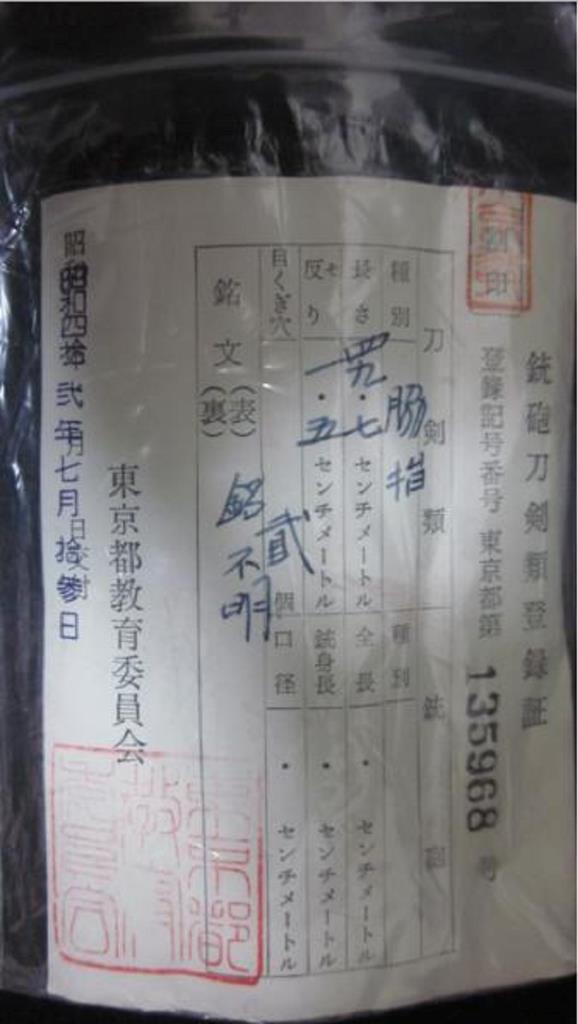 銃砲刀剣類登録証
割印
登録記号番号 東京都第 135968 号
刀剣類 銃砲
種別 脇指 種別
長さ 四九・七 センチメートル 全長 ・ センチメートル
反り 一・五 センチメートル 銃身長 ・ センチメートル
目くぎ穴 貮 個 口径 ・ センチメートル
銘文 (表) (裏) 銘不明
東京都教育委員会
昭和四拾弐年七月拾参日